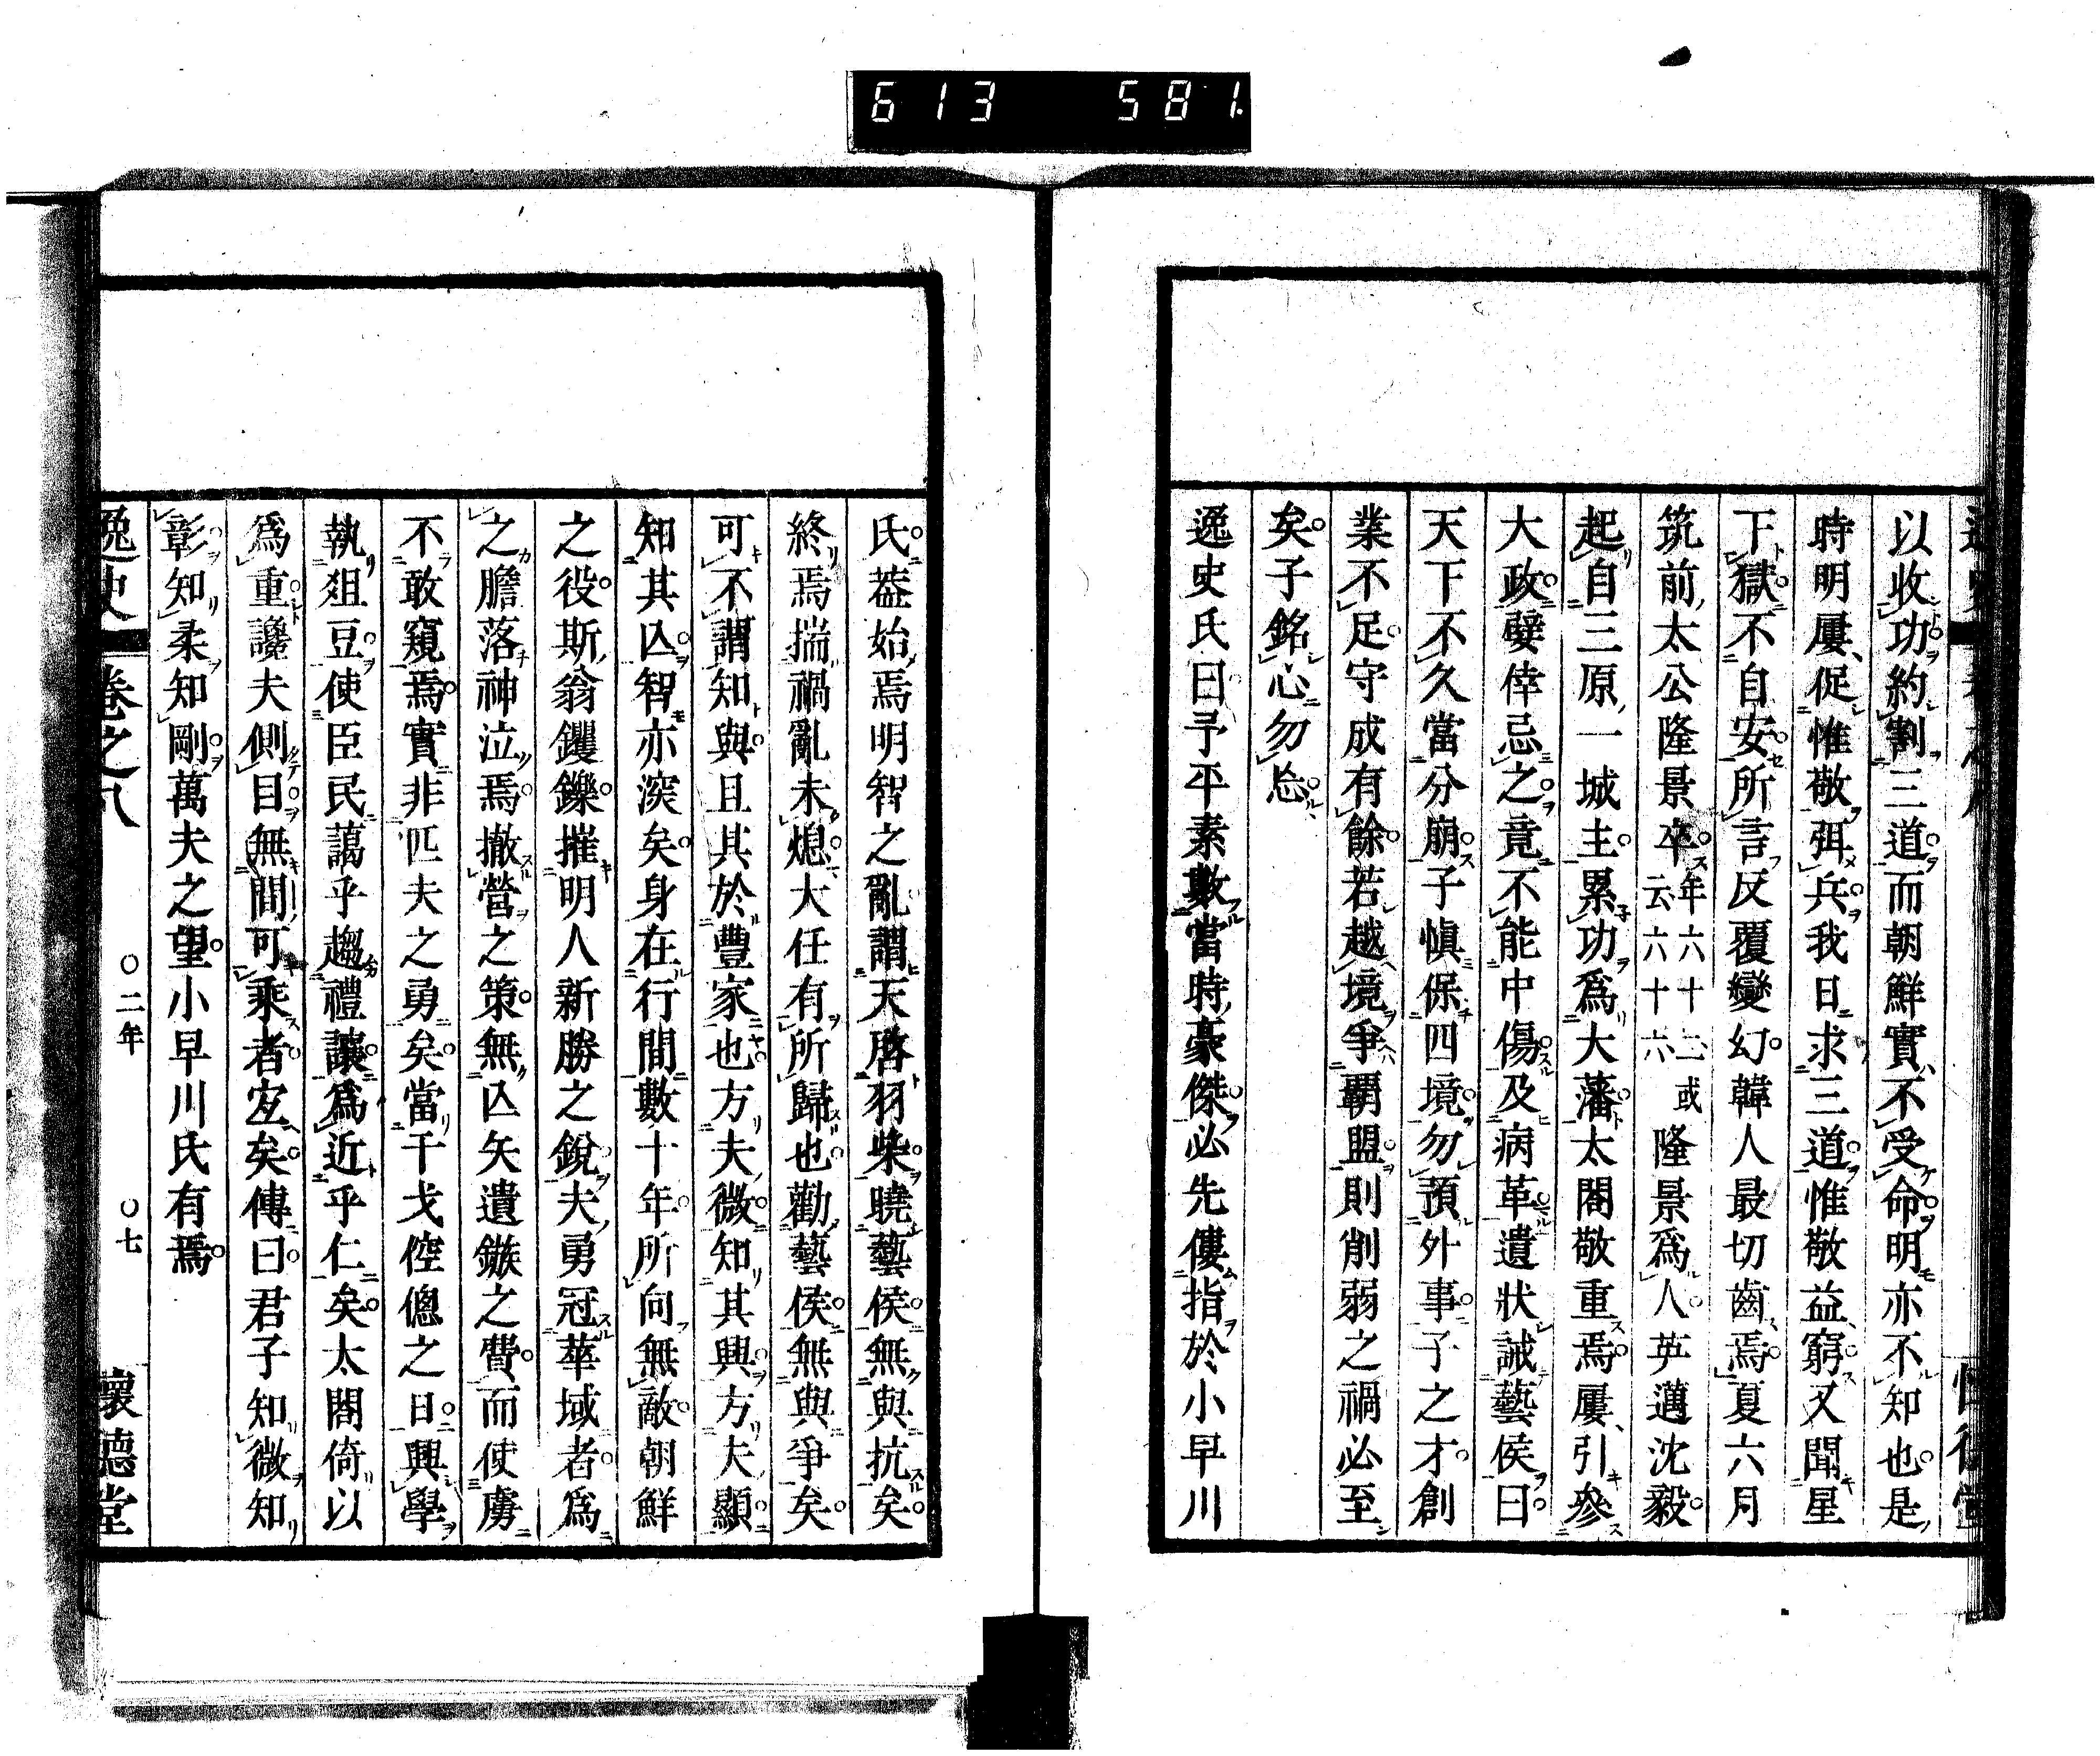 613 581
以收功約割三道而朝鮮實不受命明亦不知也是
時明屢促惟敬弭兵我日求三道惟敬益窮又聞星
下獄不自安所言反覆變幻韓人最切齒焉夏六月
筑前太公隆景卒年六十二或云六十六隆景爲人英邁沈毅
起自三原一城主累功爲大藩太閤敬重焉屢引參
大政嬖倖忌之竟不能中傷及病革遺狀誡藝侯曰
天下不久當分崩子愼保四境勿預外事子之才創
業不足守成有餘若越境爭覇盟則削弱之禍必至
矣子銘心勿忘
逸史氏曰予平素數當時豪傑必先僂指於小早川
氏葢始焉明智之亂謂天啓羽柴曉藝侯無與抗矣
終焉揣禍亂未熄大任有所歸也勸藝侯無與爭矣
可不謂知與且其於豐家也方夫微知其興方夫顯
知其亾智亦深矣身在行間數十年所向無敵朝鮮
之役斯翁钁鑠摧明人新勝之銳夫勇冠華域者爲
之膽落神泣焉撤營之策無亾矢遺鏃之費而使虜
不敢窺焉實非匹夫之勇矣當干戈倥傯之日興學
執爼豆使臣民藹乎趨禮讓爲近乎仁矣太閤倚以
爲重讒夫側目無間可乘者宐矣傳曰君子知微知
彰知柔知剛萬夫之望小早川氏有焉
逸史 卷之八 〇二年 〇七 懷德堂